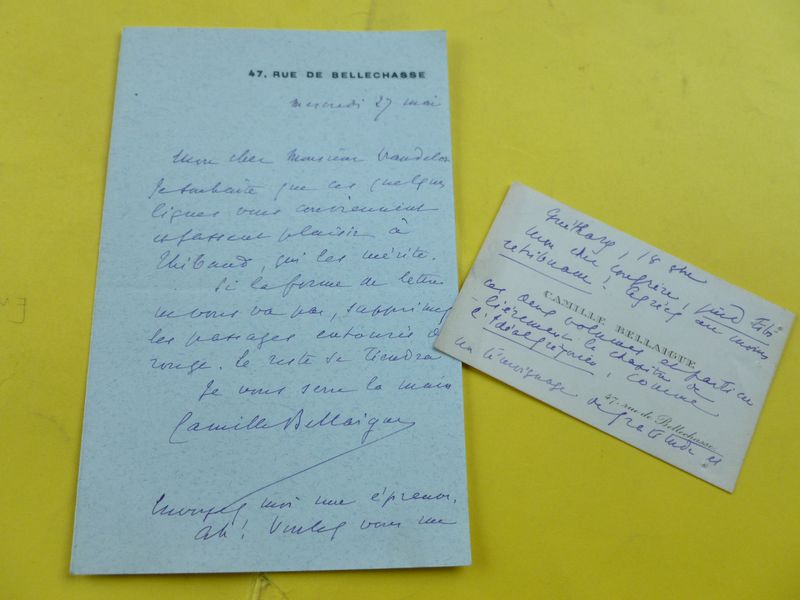 47, RUE DE BELLECHASSE
mercredi 27 mai
Mon cher Monsieur
Je souhaite que ces quelques
lignes vous conviennent
et fassent plaisir à
Thibaud, qui les mérite.
Si la forme de lettre
ne vous va pas, supprimez
les passages entourés de
rouge. le reste se tiendra
Je vous serre la main
Camille Bellaigue
Envoyez moi une épreuve.
Ah! Voulez vous me
Guéthary, 18
mon cher confrère, quid
retribuam? Agréez au moins
CAMILLE BELLAIGUE
ces deux volumes et particu
-lièrement le chapitre de
comme
un témoignage de gratitude et
47, rue de Bellechasse